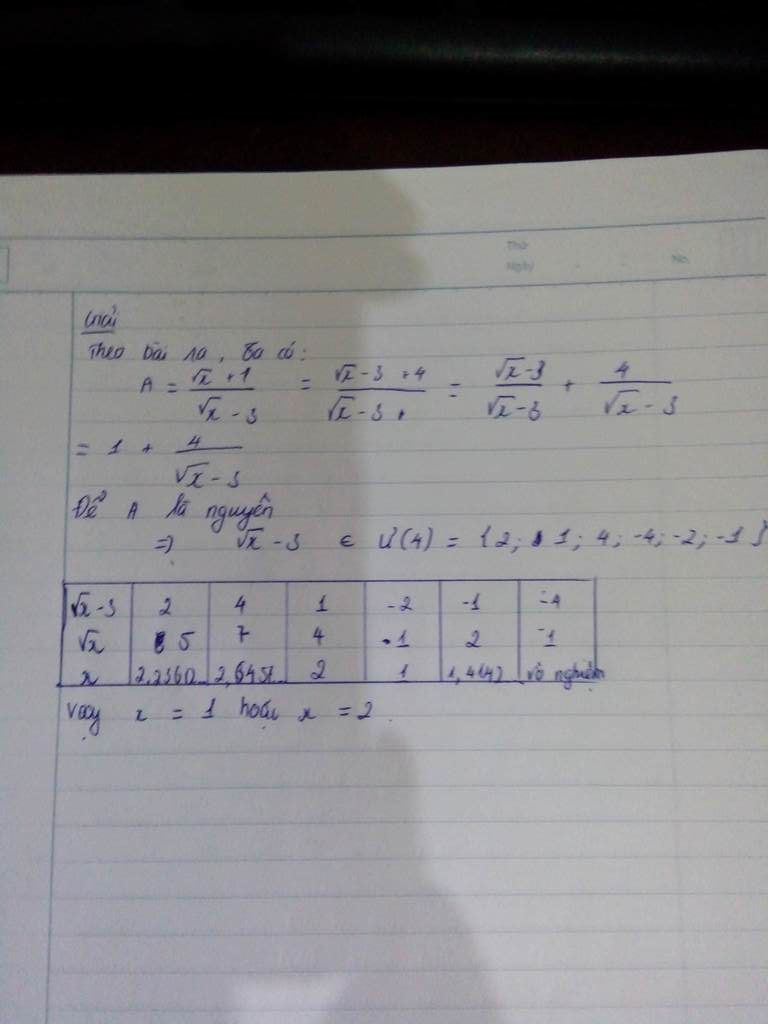 Thứ
Ngày No.
Giải
Theo bài ra, ta có:
A = √x + 1 / √x - 3 = √x - 3 + 4 / √x - 3 = √x - 3 / √x - 3 + 4 / √x - 3
= 1 + 4 / √x - 3
Để A là nguyên
=> √x - 3 ∈ Ư(4) = {2; 1; 4; -4; -2; -1}
√x - 3 2 4 1 -2 -1 -4
√x 5 7 4 1 2 -1
x 2,2360.. 2,6451.. 2 1 1,4142 vô nghiệm
Vậy x = 1 hoặc x = 2.